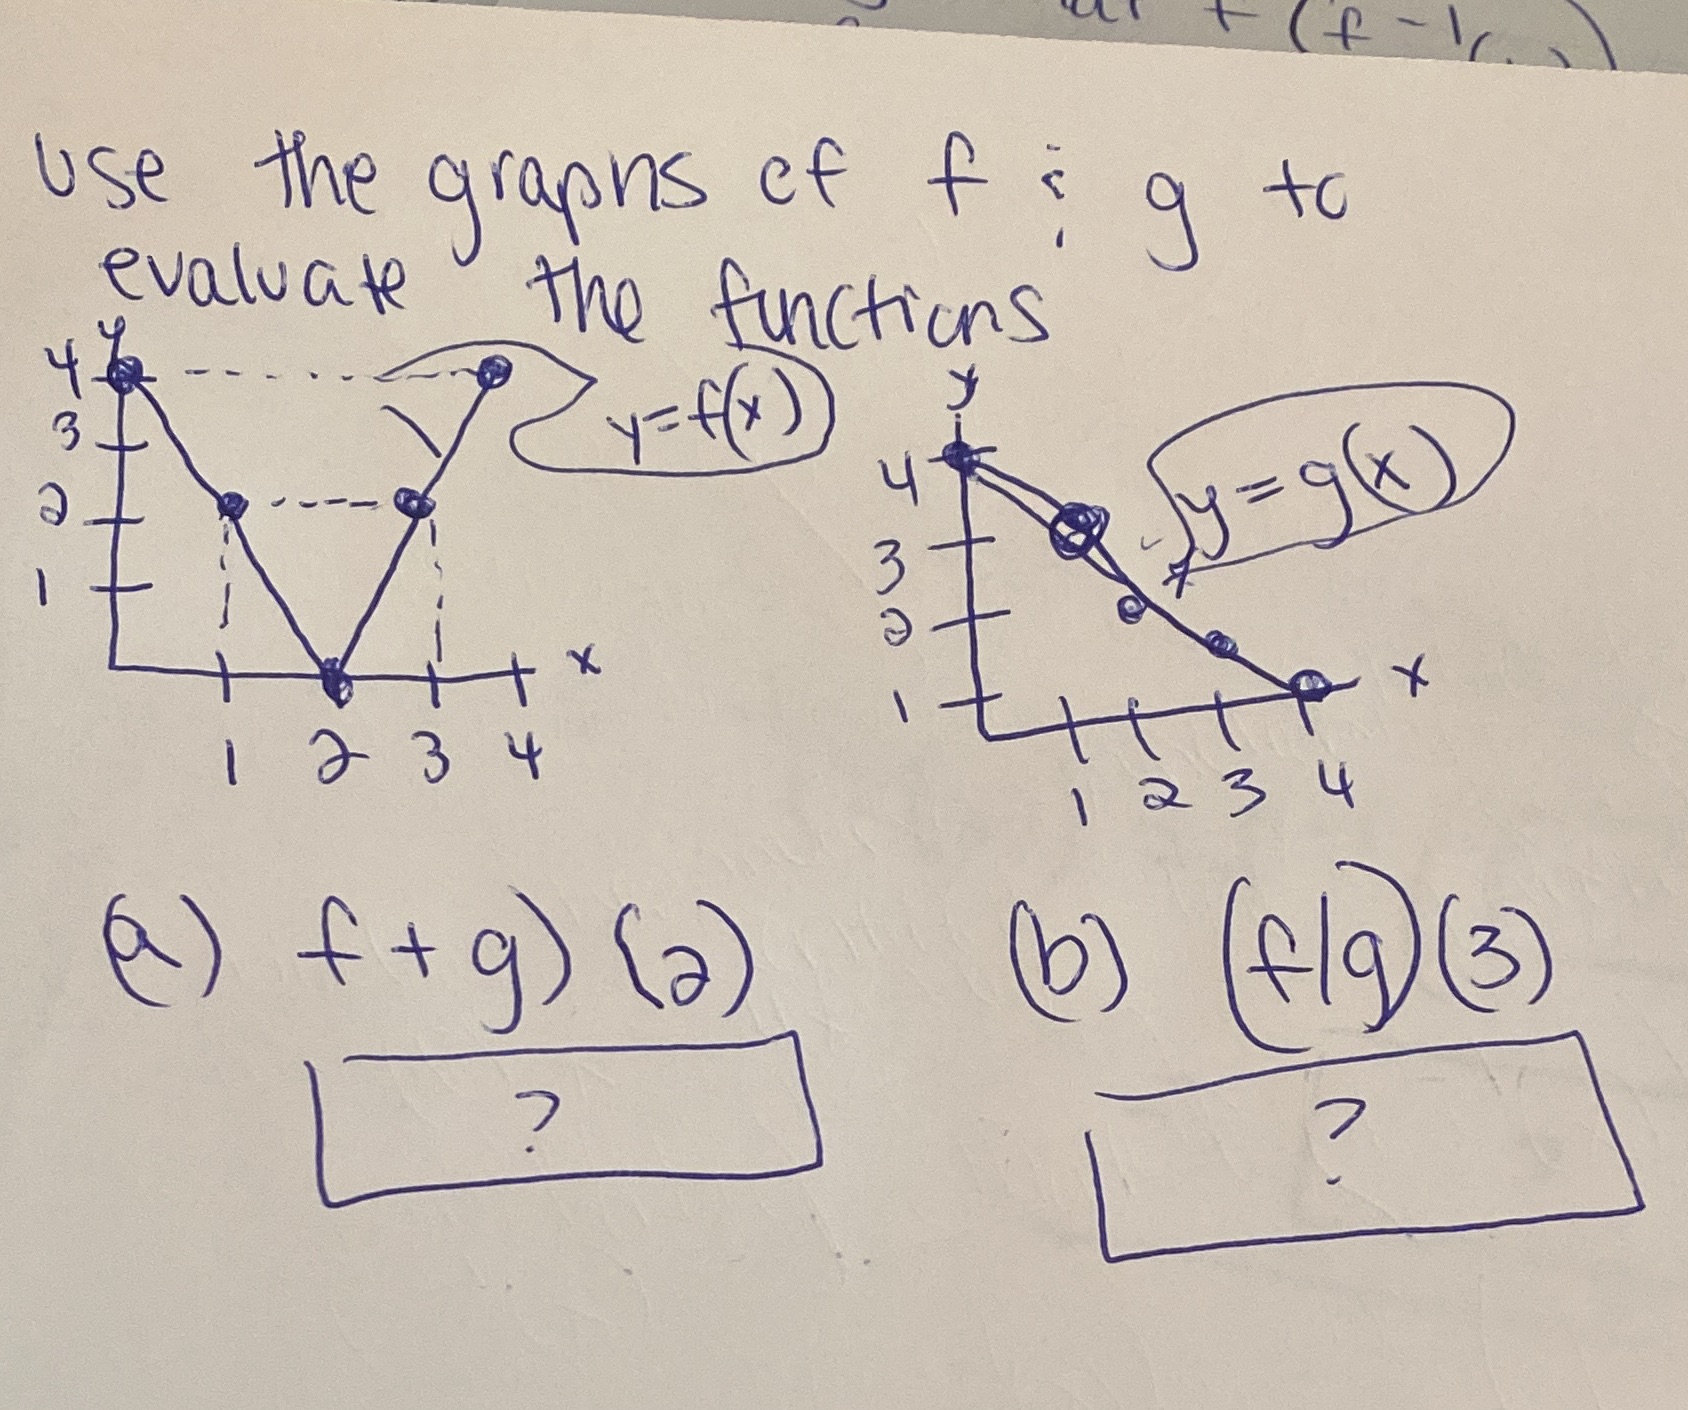 use the graphs of f & g to
evaluate the functions
y
4
3
2
1
x
1 2 3 4
y=f(x)
y
4
3
2
1
x
1 2 3 4
y=g(x)
(a) f+g) (2)
?
(b) (f/g)(3)
?